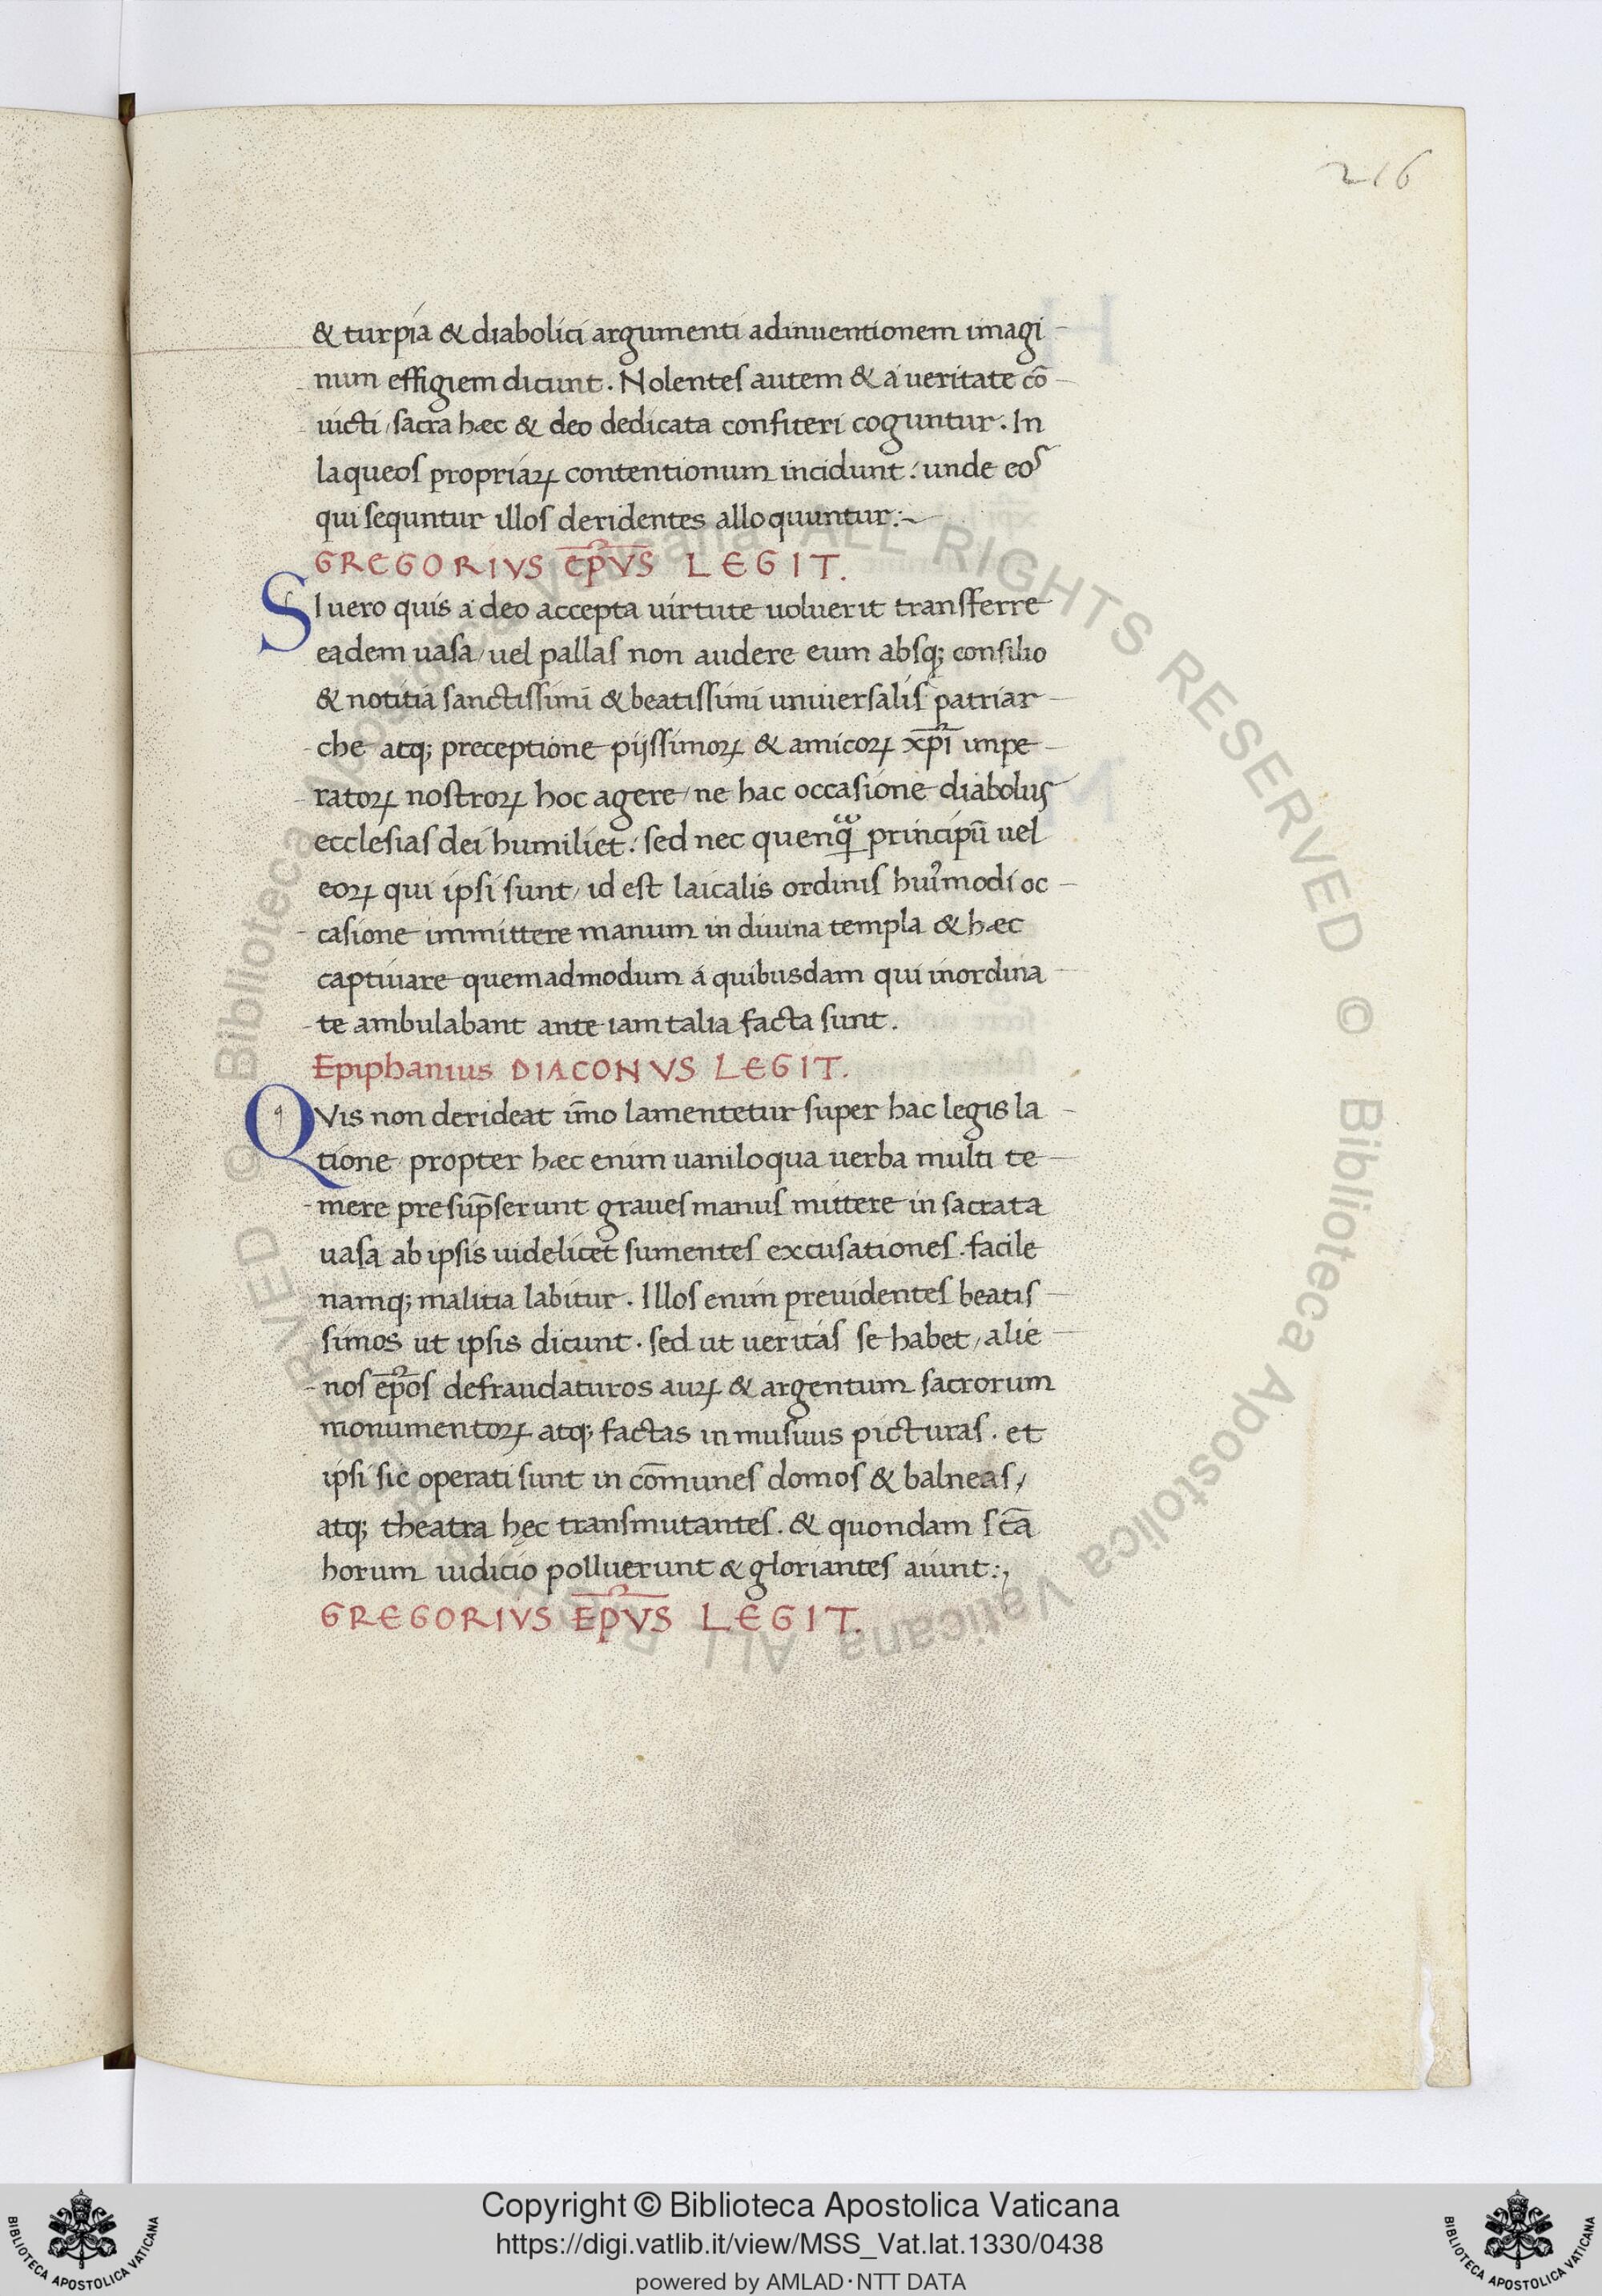 216
& turpia & diabolici argumenti adinuentionem imagi-
num effigiem dicunt. Nolentes autem & a ueritate cō-
uicti, sacra hæc & deo dedicata confiteri coguntur. In
laqueos propriaꝝ contentionum incidunt: unde eos
qui sequntur illos deridentes alloquuntur:~
GREGORIVS EP̄VS LEGIT.
SI uero quis a deo accepta uirtute uoluerit transferre
eadem uasa, uel pallas non audere eum absq; consilio
& notitia sanctissimi & beatissimi uniuersalis patriar-
che atq; preceptione pijssimoꝝ & amicoꝝ xp̄i impe-
ratoꝝ nostroꝝ hoc agere, ne hac occasione diabolus
ecclesias dei humiliet: sed nec quenqᷓ principū uel
eoꝝ qui ipsi sunt, id est laicalis ordinis huiꝰmodi oc-
casione immittere manum in diuina templa & hæc
captiuare quemadmodum á quibusdam qui inordina-
te ambulabant ante iam talia facta sunt.
Epiphanius DIACONVS LEGIT.
QVis non derideat im̄o lamentetur super hac legis la-
tione, propter hæc enim uaniloqua uerba multi te-
mere presūpserunt graues manus mittere in sacrata
uasa ab ipsis uidelicet sumentes excusationes. facile
namq; malitia labitur. Illos enim preuidentes beatis-
simos ut ipsis dicunt. sed ut ueritas se habet, alie-
nos ep̄os defraudaturos auꝝ & argentum sacrorum
monumentoꝝ atq; factas in musiuis picturas. et
ipsi sic operati sunt in cōmunes domos & balneas,
atq; theatra hęc transmutantes. & quondam sc̄a
horum iudicio polluerunt & gloriantes aiunt:,
GREGORIVS EP̄VS LEGIT.
© Biblioteca Apostolica Vaticana ALL RIGHTS RESERVED © Biblioteca Apostolica Vaticana ALL RIGHTS RESERVED
BIBLIOTECA APOSTOLICA VATICANA
Copyright © Biblioteca Apostolica Vaticana
https://digi.vatlib.it/view/MSS_Vat.lat.1330/0438
powered by AMLAD·NTT DATA
BIBLIOTECA APOSTOLICA VATICANA